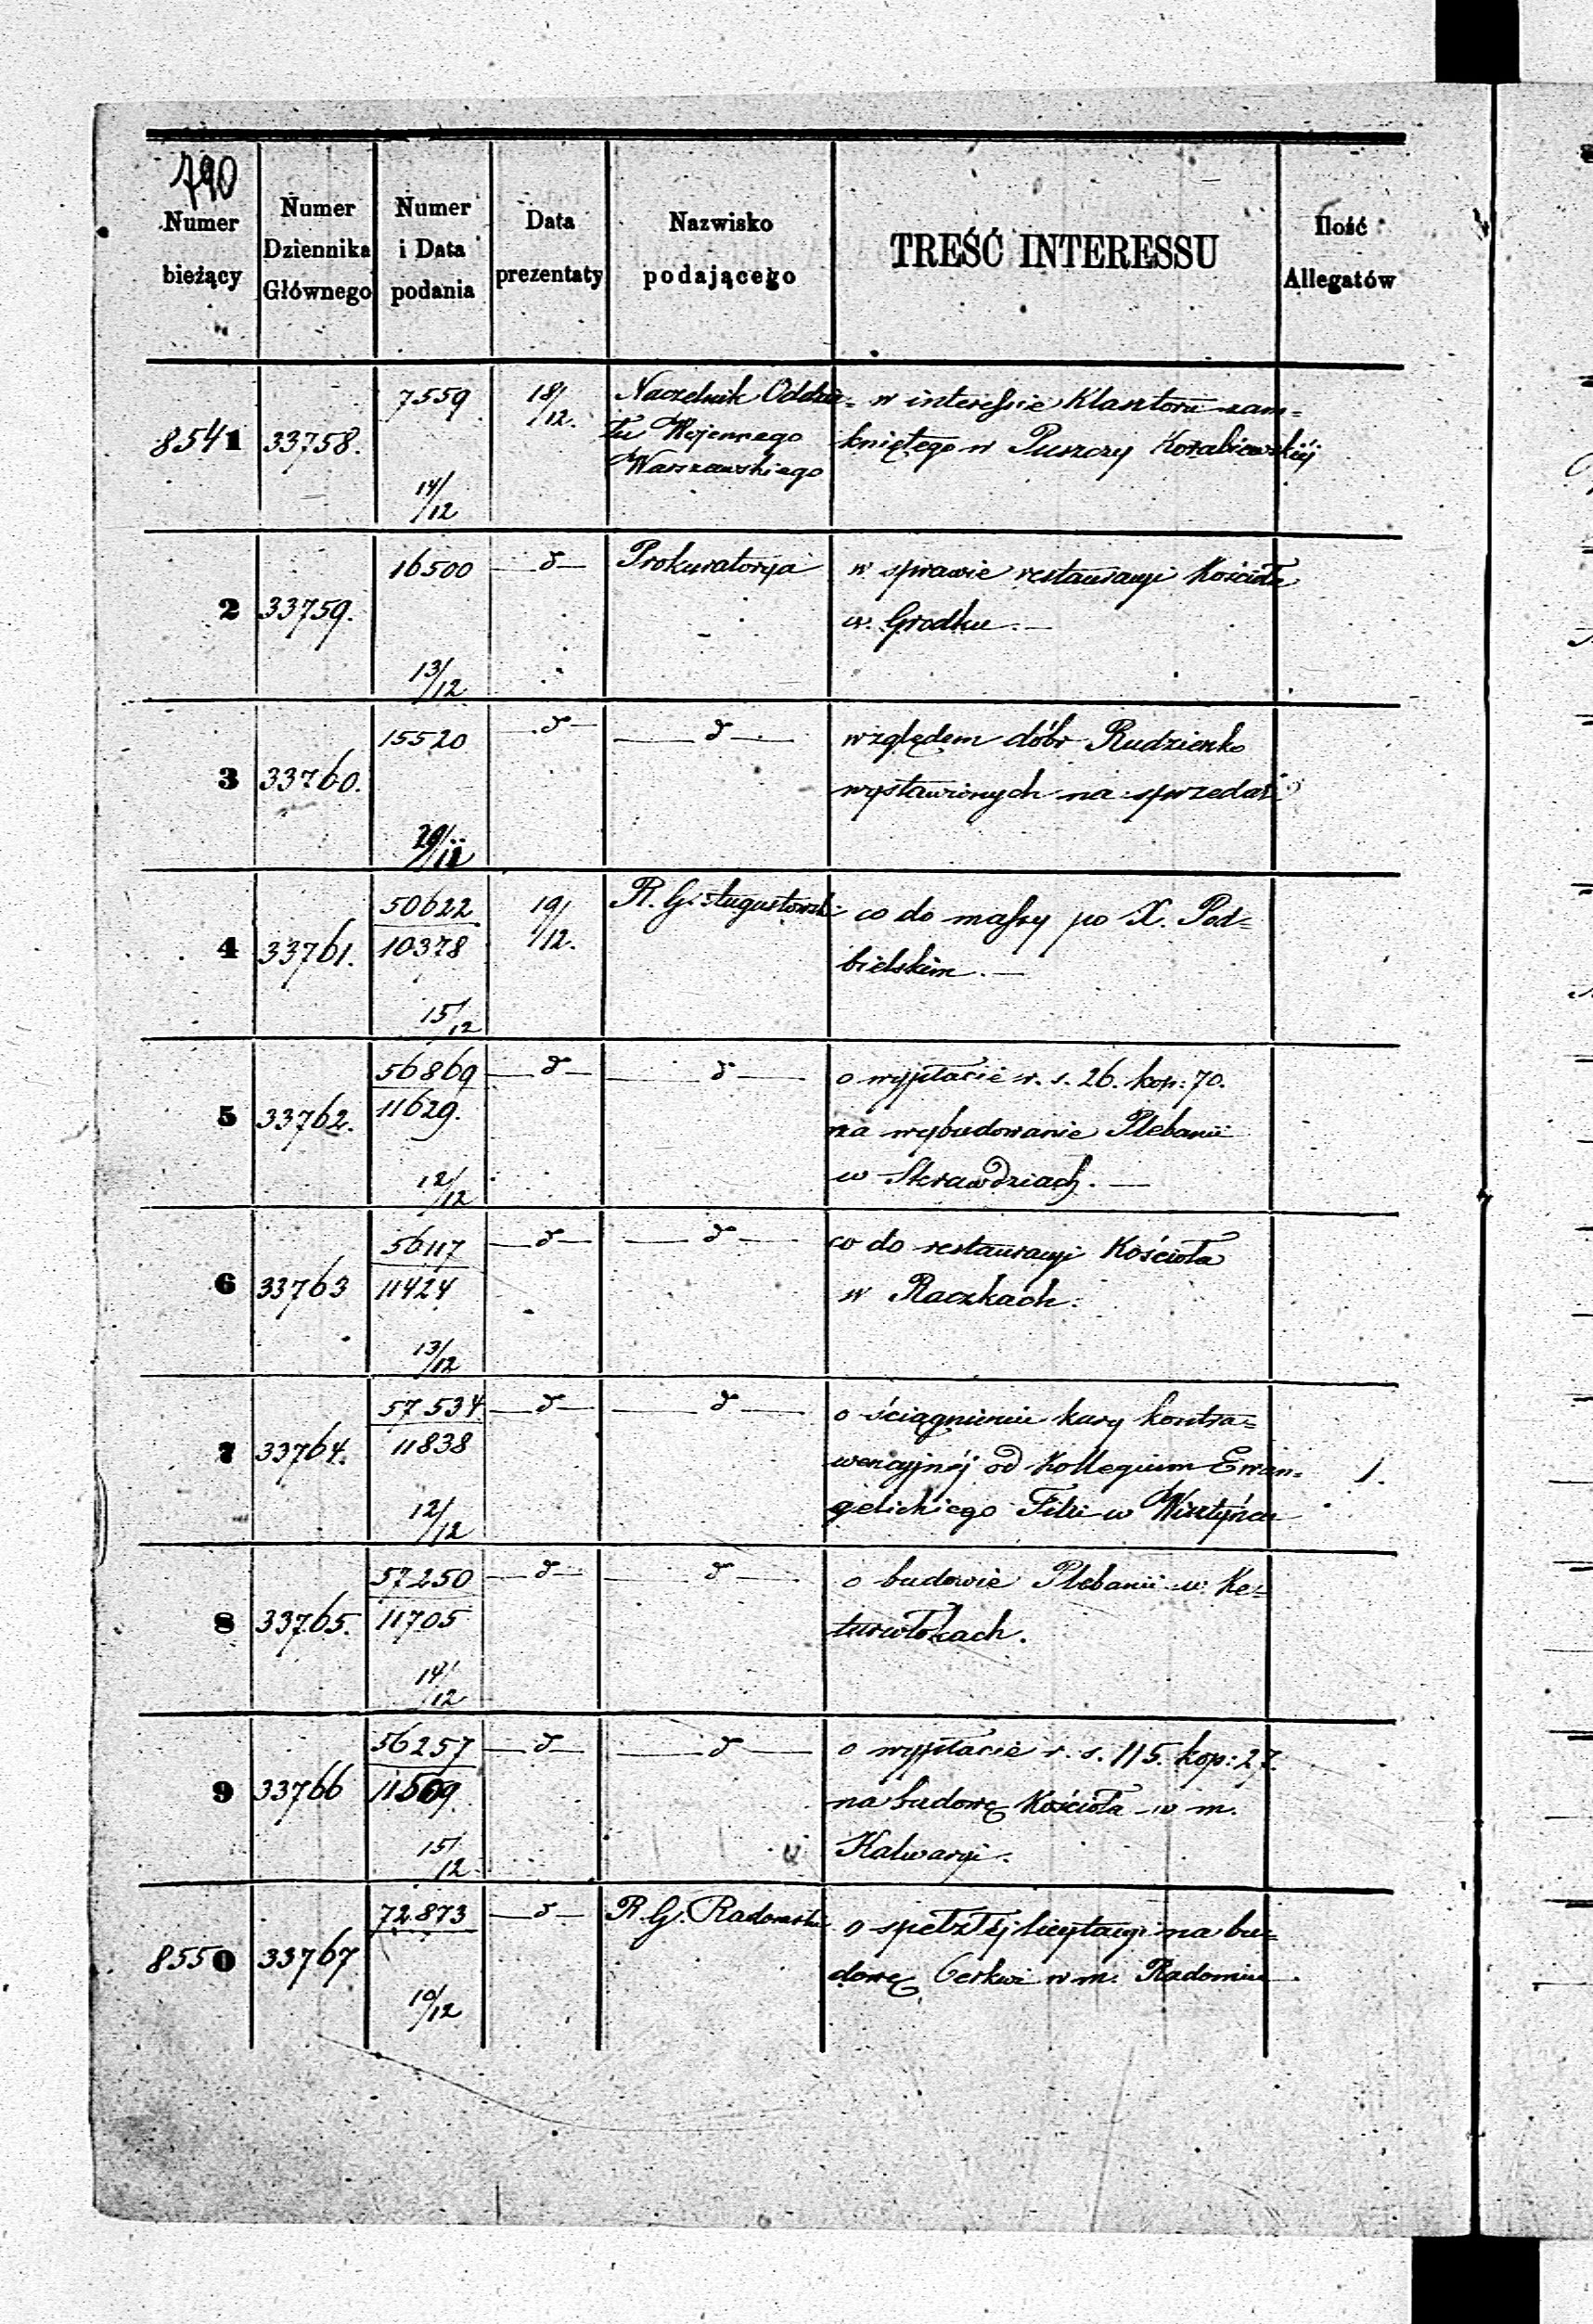 790
Numer bieżący | Numer Dziennika Głównego | Numer i Data podania | Data prezentaty | Nazwisko podającego | TREŚĆ INTERESSU | Ilość Allegatów
8541 | 33758. | 7559 14/12 | 18/12. | Naczelnik Oddzia= | w interessie Klasztoru zam=
łu Wojennego | kniętego w Puszczy Korabiewskiéj
Warszawskiego
2 | 33759. | 16500 13/12 | d | Prokuratorya | w sprawie restauracyi Kościoła
w Grodku. —
3 | 33760. | 15520 | d | d | względem dóbr Rudzienko
wystawionych na sprzedaż
4 | 33761. | 50622 10378 15/12 | 19/12. | R. G. Augustowski | co do massy po X. Pod=
bielskim. —
5 | 33762. | 56869 11629. 12/12 | d | d | o wypłacie r. s. 26. kop: 70.
na wybudowanie Plebanii
w Skrawdziach. —
6 | 33763 | 56117 11424 13/12 | d | d | co do restauracyi Kościoła
w Raczkach.
7 | 33764. | 57534 11838 12/12 | d | d | o ściągnieniu kary kontra=
wencyjnéj od Kollegium Ewan= | 1.
gelickiego Filii w Wisztyńcu
8 | 33765. | 57250 11705 14/12 | d | d | o budowie Plebanii w Ke=
turwłokach.
9 | 33766 | 56257 11509. 15/12 | d | d | o wypłacie r. s. 115. kop: 27.
na budowę Kościoła w m.
Kalwaryi.
8550 | 33767 | 72873 10/12 | d | R. G. Radomski | o spełzłéj licytacyi na bu=
dowę Cerkwi w m. Radomiu.